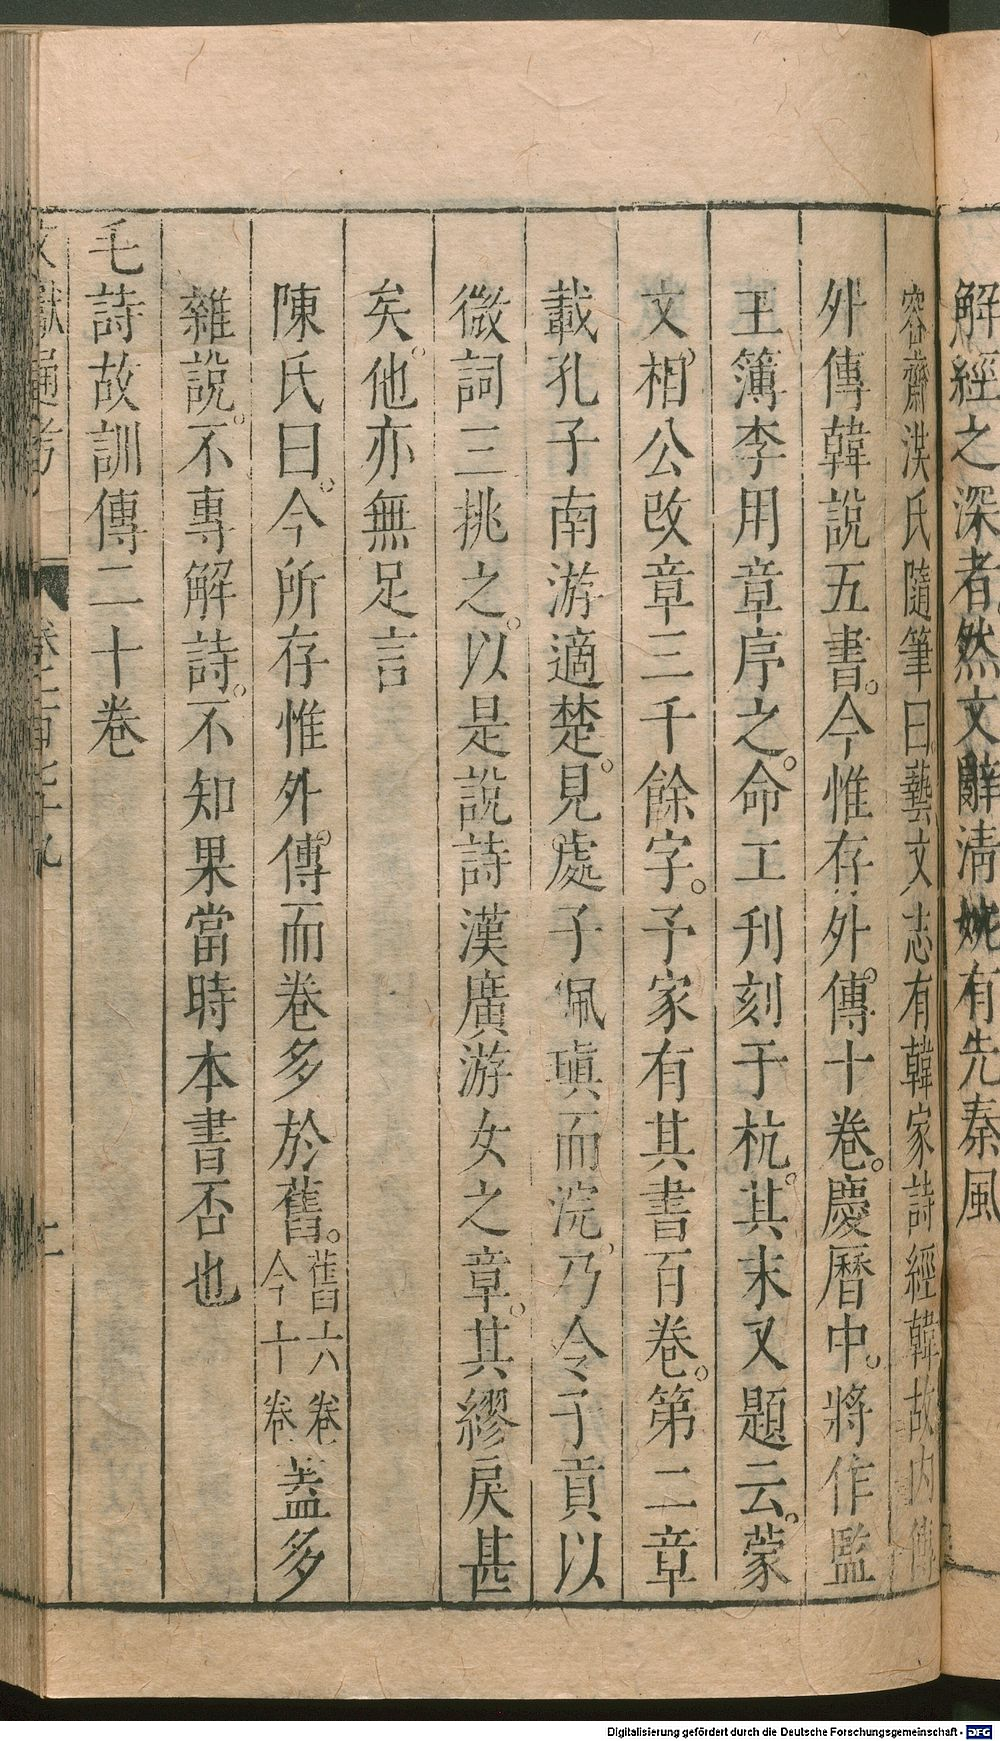 解經之深者然文辭清婉有先秦風
容齋洪氏隨筆曰藝文志有韓家詩經韓故內傳
外傳韓說五書。今惟存外傳十卷。慶曆中。將作監
主簿李用章序之。命工刊刻于杭。其末又題云。蒙
文相公改章三千餘字。予家有其書百卷。第二章
載孔子南游適楚。見處子佩瑱而浣。乃令子貢以
微詞三挑之。以是說詩漢廣游女之章。其繆戾甚
矣。他亦無足言
陳氏曰。今所存惟外傳。而卷多於舊。舊六卷今十卷蓋多
雜說。不專解詩。不知果當時本書否也
毛詩故訓傳二十卷
文獻通考 卷一百七十九 十一
Digitalisierung gefördert durch die Deutsche Forschungsgemeinschaft - DFG